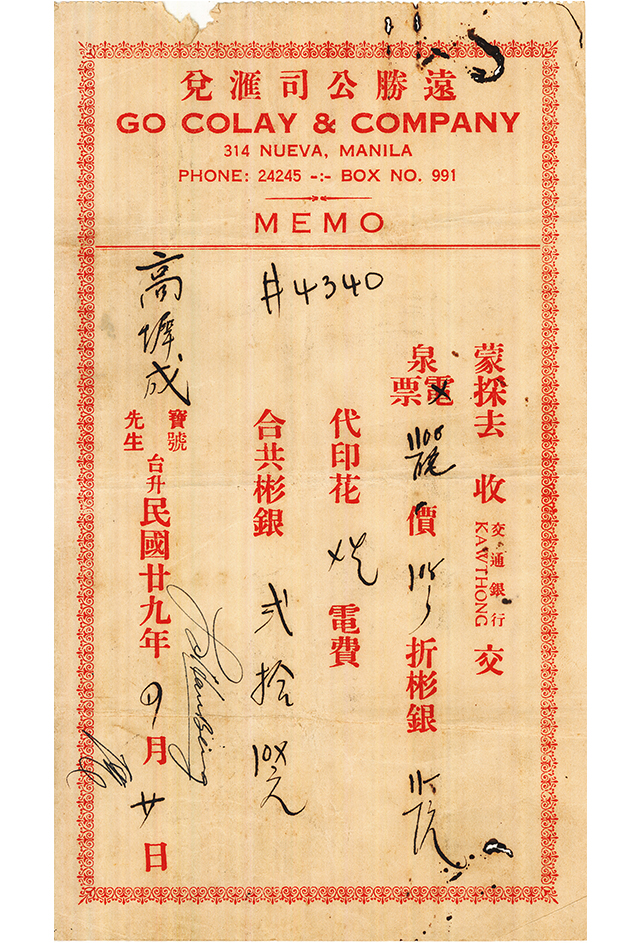 遠勝公司滙兌
GO COLAY & COMPANY
314 NUEVA, MANILA
PHONE: 24245 -:- BOX NO. 991
MEMO
#4340
蒙採去 收 交通銀行 KAWTHONG 交
泉電票 價 折彬銀
代印花 電費
合共彬銀 弍拾
高 成 寶號先生 台升
民國廿九年 月廿日